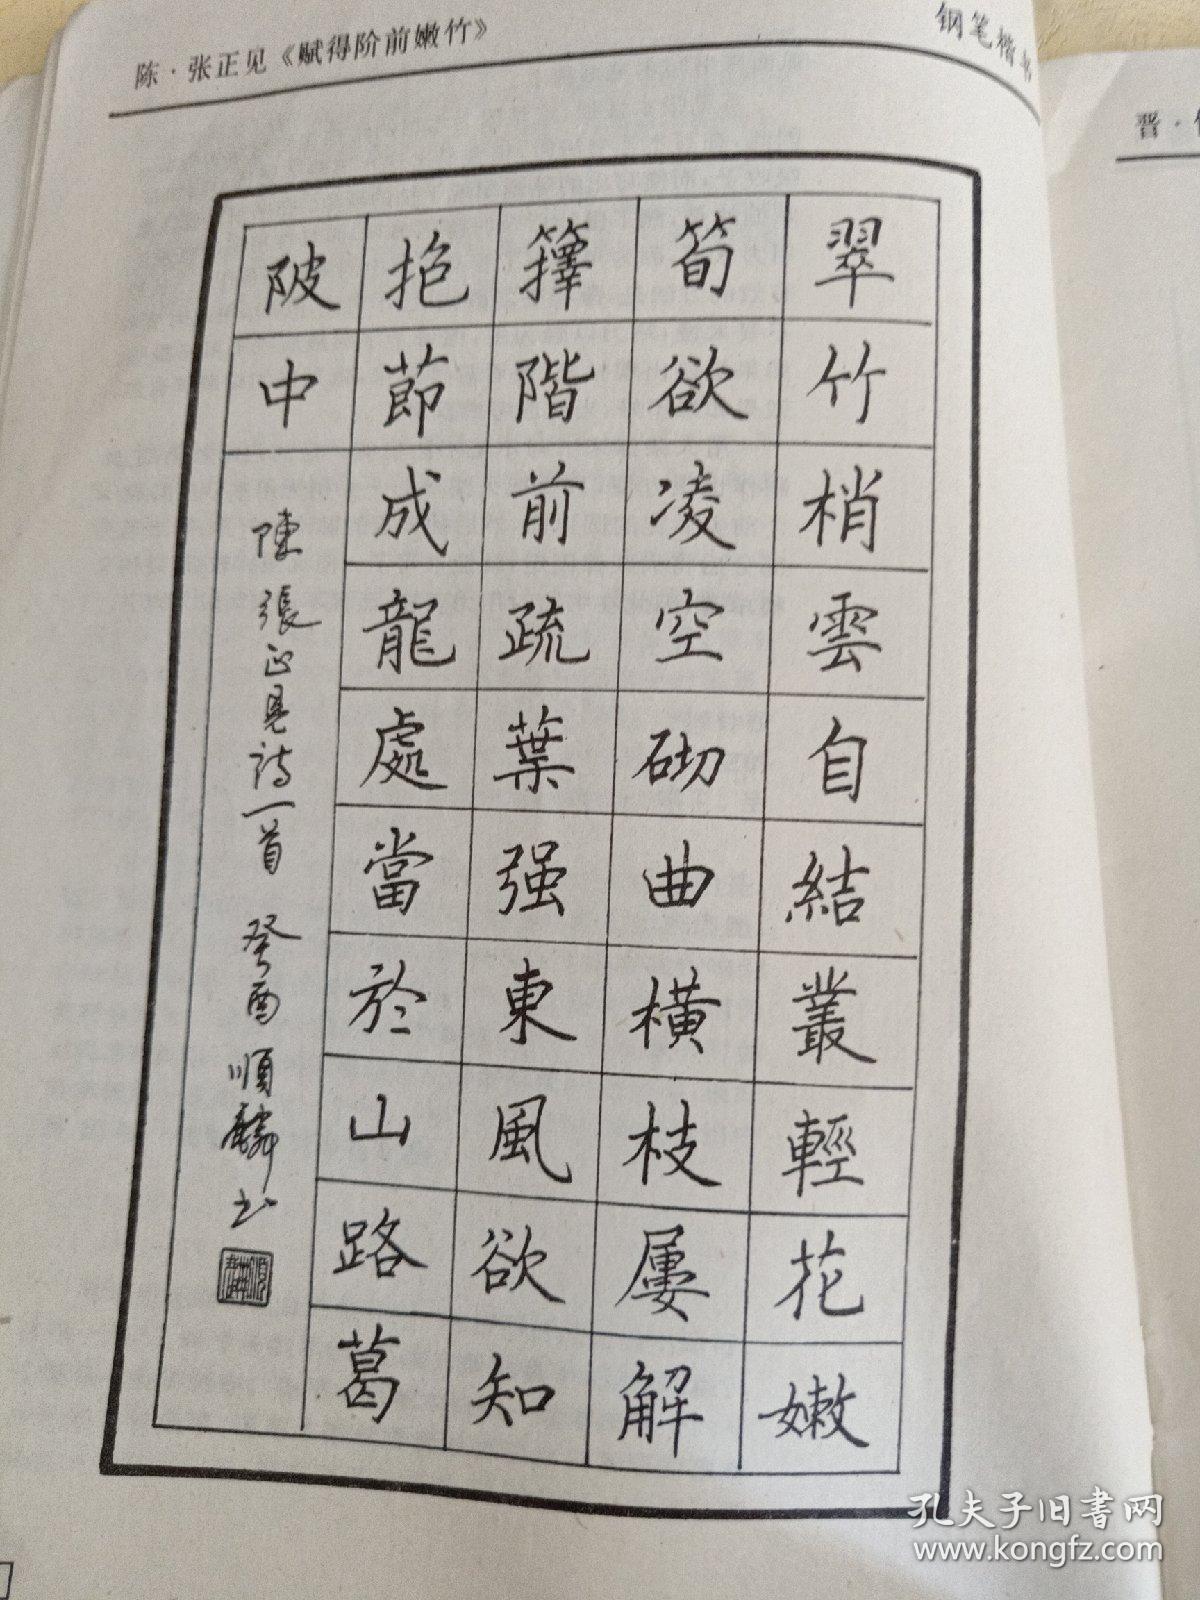 陈·张正见《赋得阶前嫩竹》
钢笔楷书
晋·
翠竹梢雲自結叢輕花嫩
筍欲凌空砌曲橫枝屢解
籜階前疏葉强東風欲知
抱節成龍處當於山路葛
陂中
陳張正見詩一首 癸酉 順麟书
孔夫子旧书网
www.kongfz.com